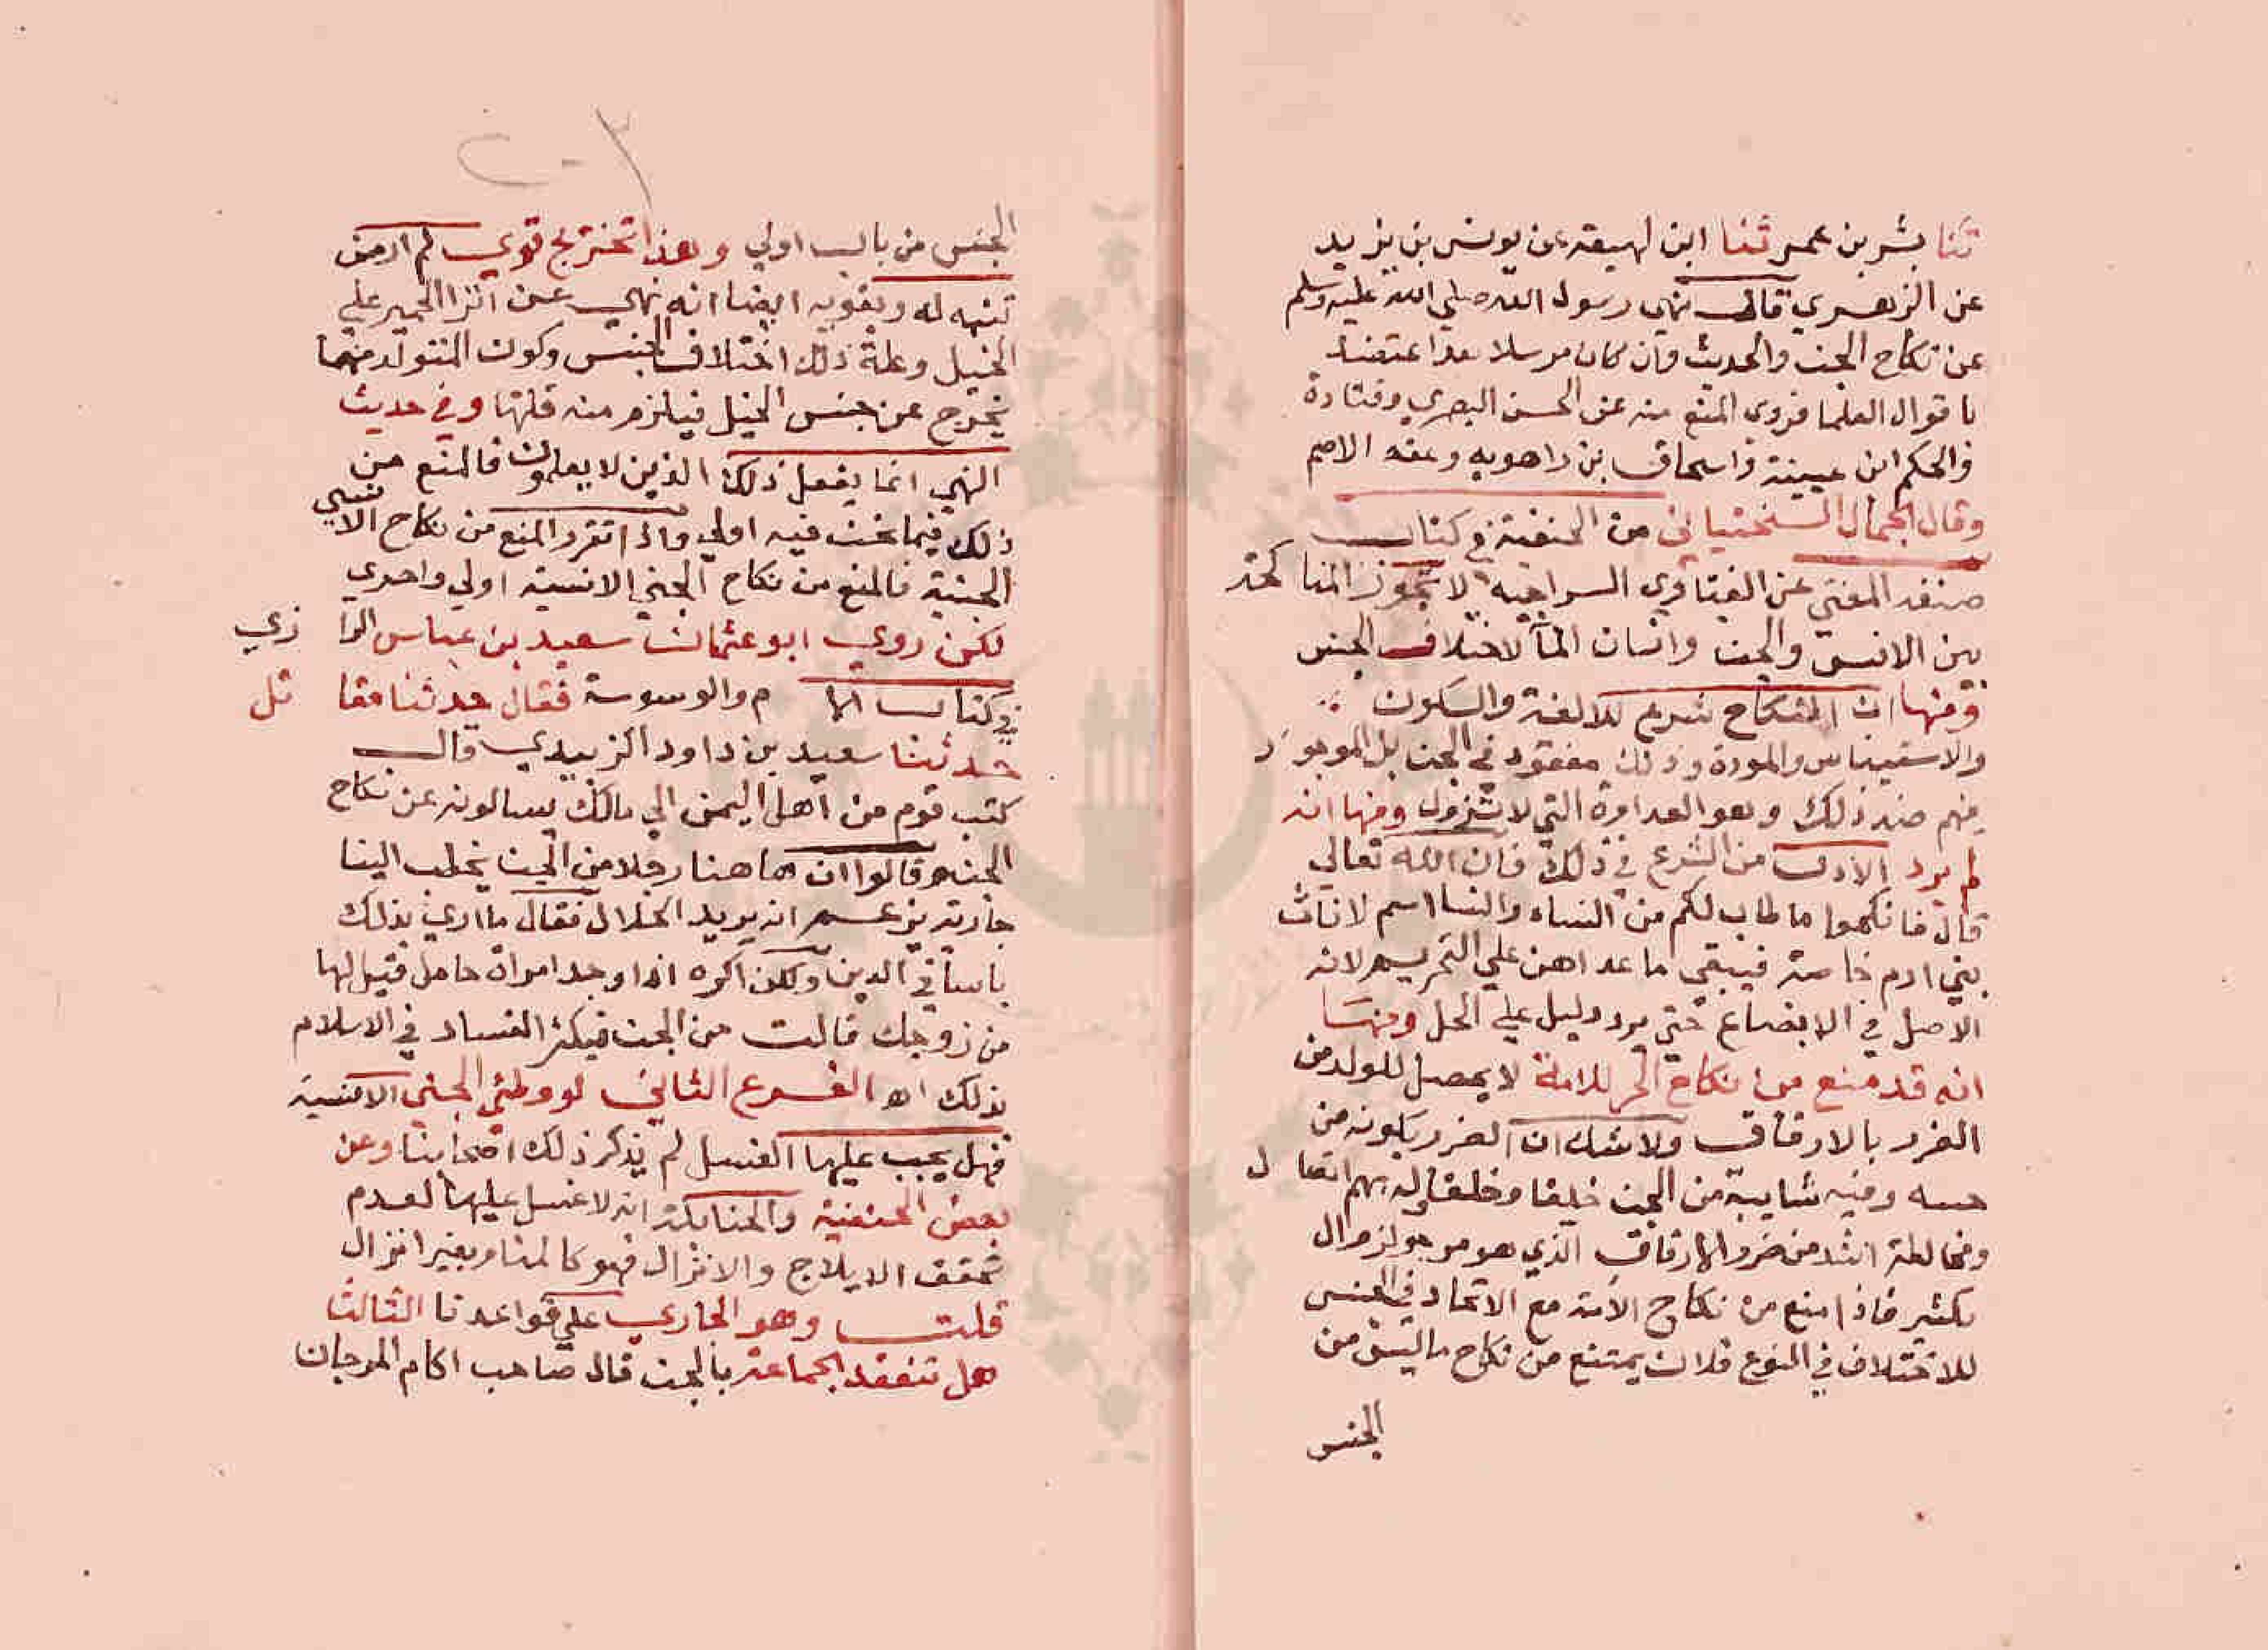 ثنا بشر بن عمر ثنا ابن لهيعة عن يونس بن يزيد
عن الزهري قال نهى رسول الله صلي الله عليه وسلم
عن نكاح الجن والحديث وان كان مرسلا فقد اعتضد
با قوال العلما فروى المنع منه عن الحسن البصري وقتادة
والحكم ابن عيينة واسحاق بن راهويه وعقبه الاصم
وقال الجمال السنجستاني من الحنفية في كتاب
منية المفتي عن الفتاوي السراجيه لا تجوز المناكحة
بين الانس والجن وانسان الما لاختلاف الجنس
ومنها ان النكاح شرع للالفة والسكون
والاستيناس والمودة وذلك مفقود في الجن بل الموجود
فيهم ضد ذلك وهو العداوة التي لا تزول ومنها انه
لم يرد الاذن من الشرع في ذلك فان الله تعالي
قال فانكحوا ما طاب لكم من النساء والنسا اسم لاناث
بني ادم خاصة فيبقي ما عداهن علي التحريم لانه
الاصل في الابضاع حتي يرد دليل علي الحل ومنها
انه قد منع من نكاح الحر للامة لا يحصل للولد من
الضرر بالارقاق ولا شك ان الضرر بكونه من
جنيه وفيه شايبة من الجن خلقا وخلقا وله بهم اتصال
ومخالطة اشد من ضرر الارقاق الذي هو مرجو الزوال
بكثير فاذا منع من نكاح الامة مع الاتحاد في الجنس
للاختلاف في النوع فلان يمتنع من نكاح ما ليس من
الجنس
الجنس من باب اولي وهذا تخريج قوي لم ار من
تنبه له ويقويه ايضا انه نهي عن انزا الحمير علي
الخيل وعلة ذلك اختلاف الجنس وكون المتولد منهما
يخرج عن جنس الخيل فيلزم منه قلتها وفي حديث
النهي انما يفعل ذلك الذين لا يعلمون فالمنع من
ذلك فيما نحن فيه اولي واذا تقرر المنع من نكاح الانسي
الجنية فالمنع من نكاح الجني الانسية اولي واحري
لكن روي ابو عثمان سعيد بن عباس الرازي
في كتاب الالهام والوسوسة فقال حدثنا مقاتل
حدثنا سعيد بن داود الزبيدي قال
كتب قوم من اهل اليمن الي مالك يسالونه عن نكاح
الجن وقالوا ان هاهنا رجلا من الجن يخطب الينا
جارية يزعم انه يريد الحلال فقال ما اري بذلك
باسا في الدين ولكن اكره اذا وجد امراة حامل قيل لها
من زوجك قالت من الجن فيكثر الفساد في الاسلام
بذلك اه الفرع الثاني لو وطئي الجني الانسية
فهل يجب عليها الغسل لم يذكر ذلك اصحابنا وعن
بعض الحنفية والحنابلة انه لا غسل عليها لعدم
تحقق الايلاج والانزال فهو كالمنام بغير انزال
قلت وهو الجاري علي قواعدنا الثالث
هل تنعقد الجماعة بالجن قال صاحب اكام المرجان